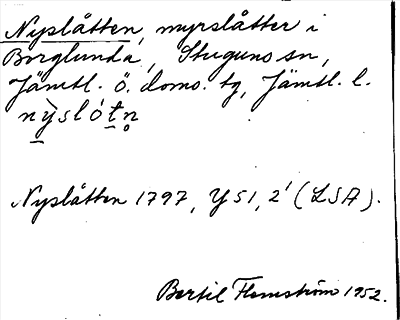 Nyslåtten, myrslåtter i
Borglunda, Stuguns sn,
Jämtl. ö. doms. tg, Jämtl. l.
nỳslót̠n̥
Nyslåtten 1797, Y 51, 2' (LSA).
Bertil Flemström 1952.